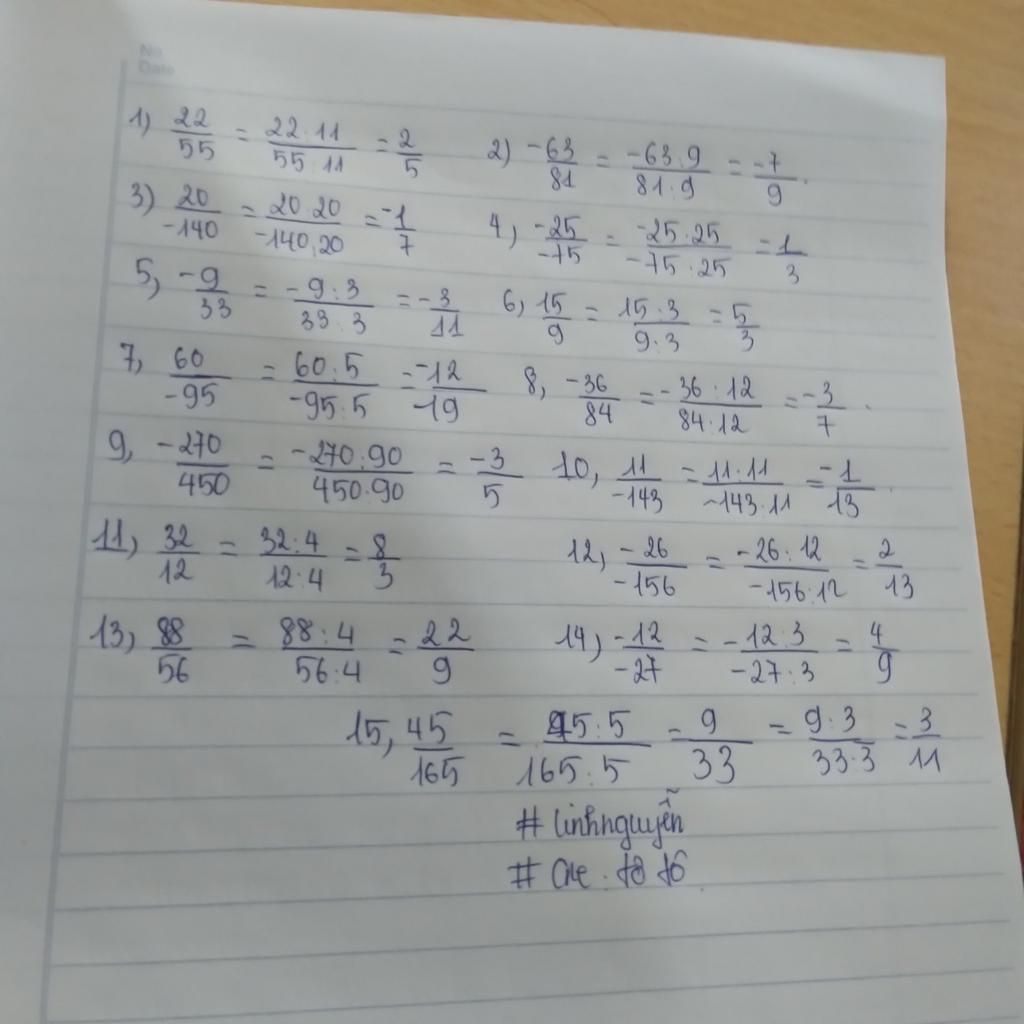 No.
Date
1) 22/55 = 22:11/55:11 = 2/5 2) -63/81 = -63:9/81:9 = -7/9.
3) 20/-140 = 20:20/-140:20 = -1/7 4, -25/-75 = -25:25/-75:25 = 1/3
5, -9/33 = -9:3/33:3 = -3/11 6, 15/9 = 15:3/9:3 = 5/3
7, 60/-95 = 60:5/-95:5 = -12/19 8, -36/84 = -36:12/84:12 = -3/7.
9, -270/450 = -270:90/450:90 = -3/5 10, 11/-143 = 11:11/-143:11 = -1/13.
11, 32/12 = 32:4/12:4 = 8/3 12, -26/-156 = -26:12/-156:12 = 2/13
13, 88/56 = 88:4/56:4 = 22/9 14, -12/-27 = -12:3/-27:3 = 4/9
15, 45/165 = 45:5/165:5 = 9/33 = 9:3/33:3 = 3/11
# linhnguyễn